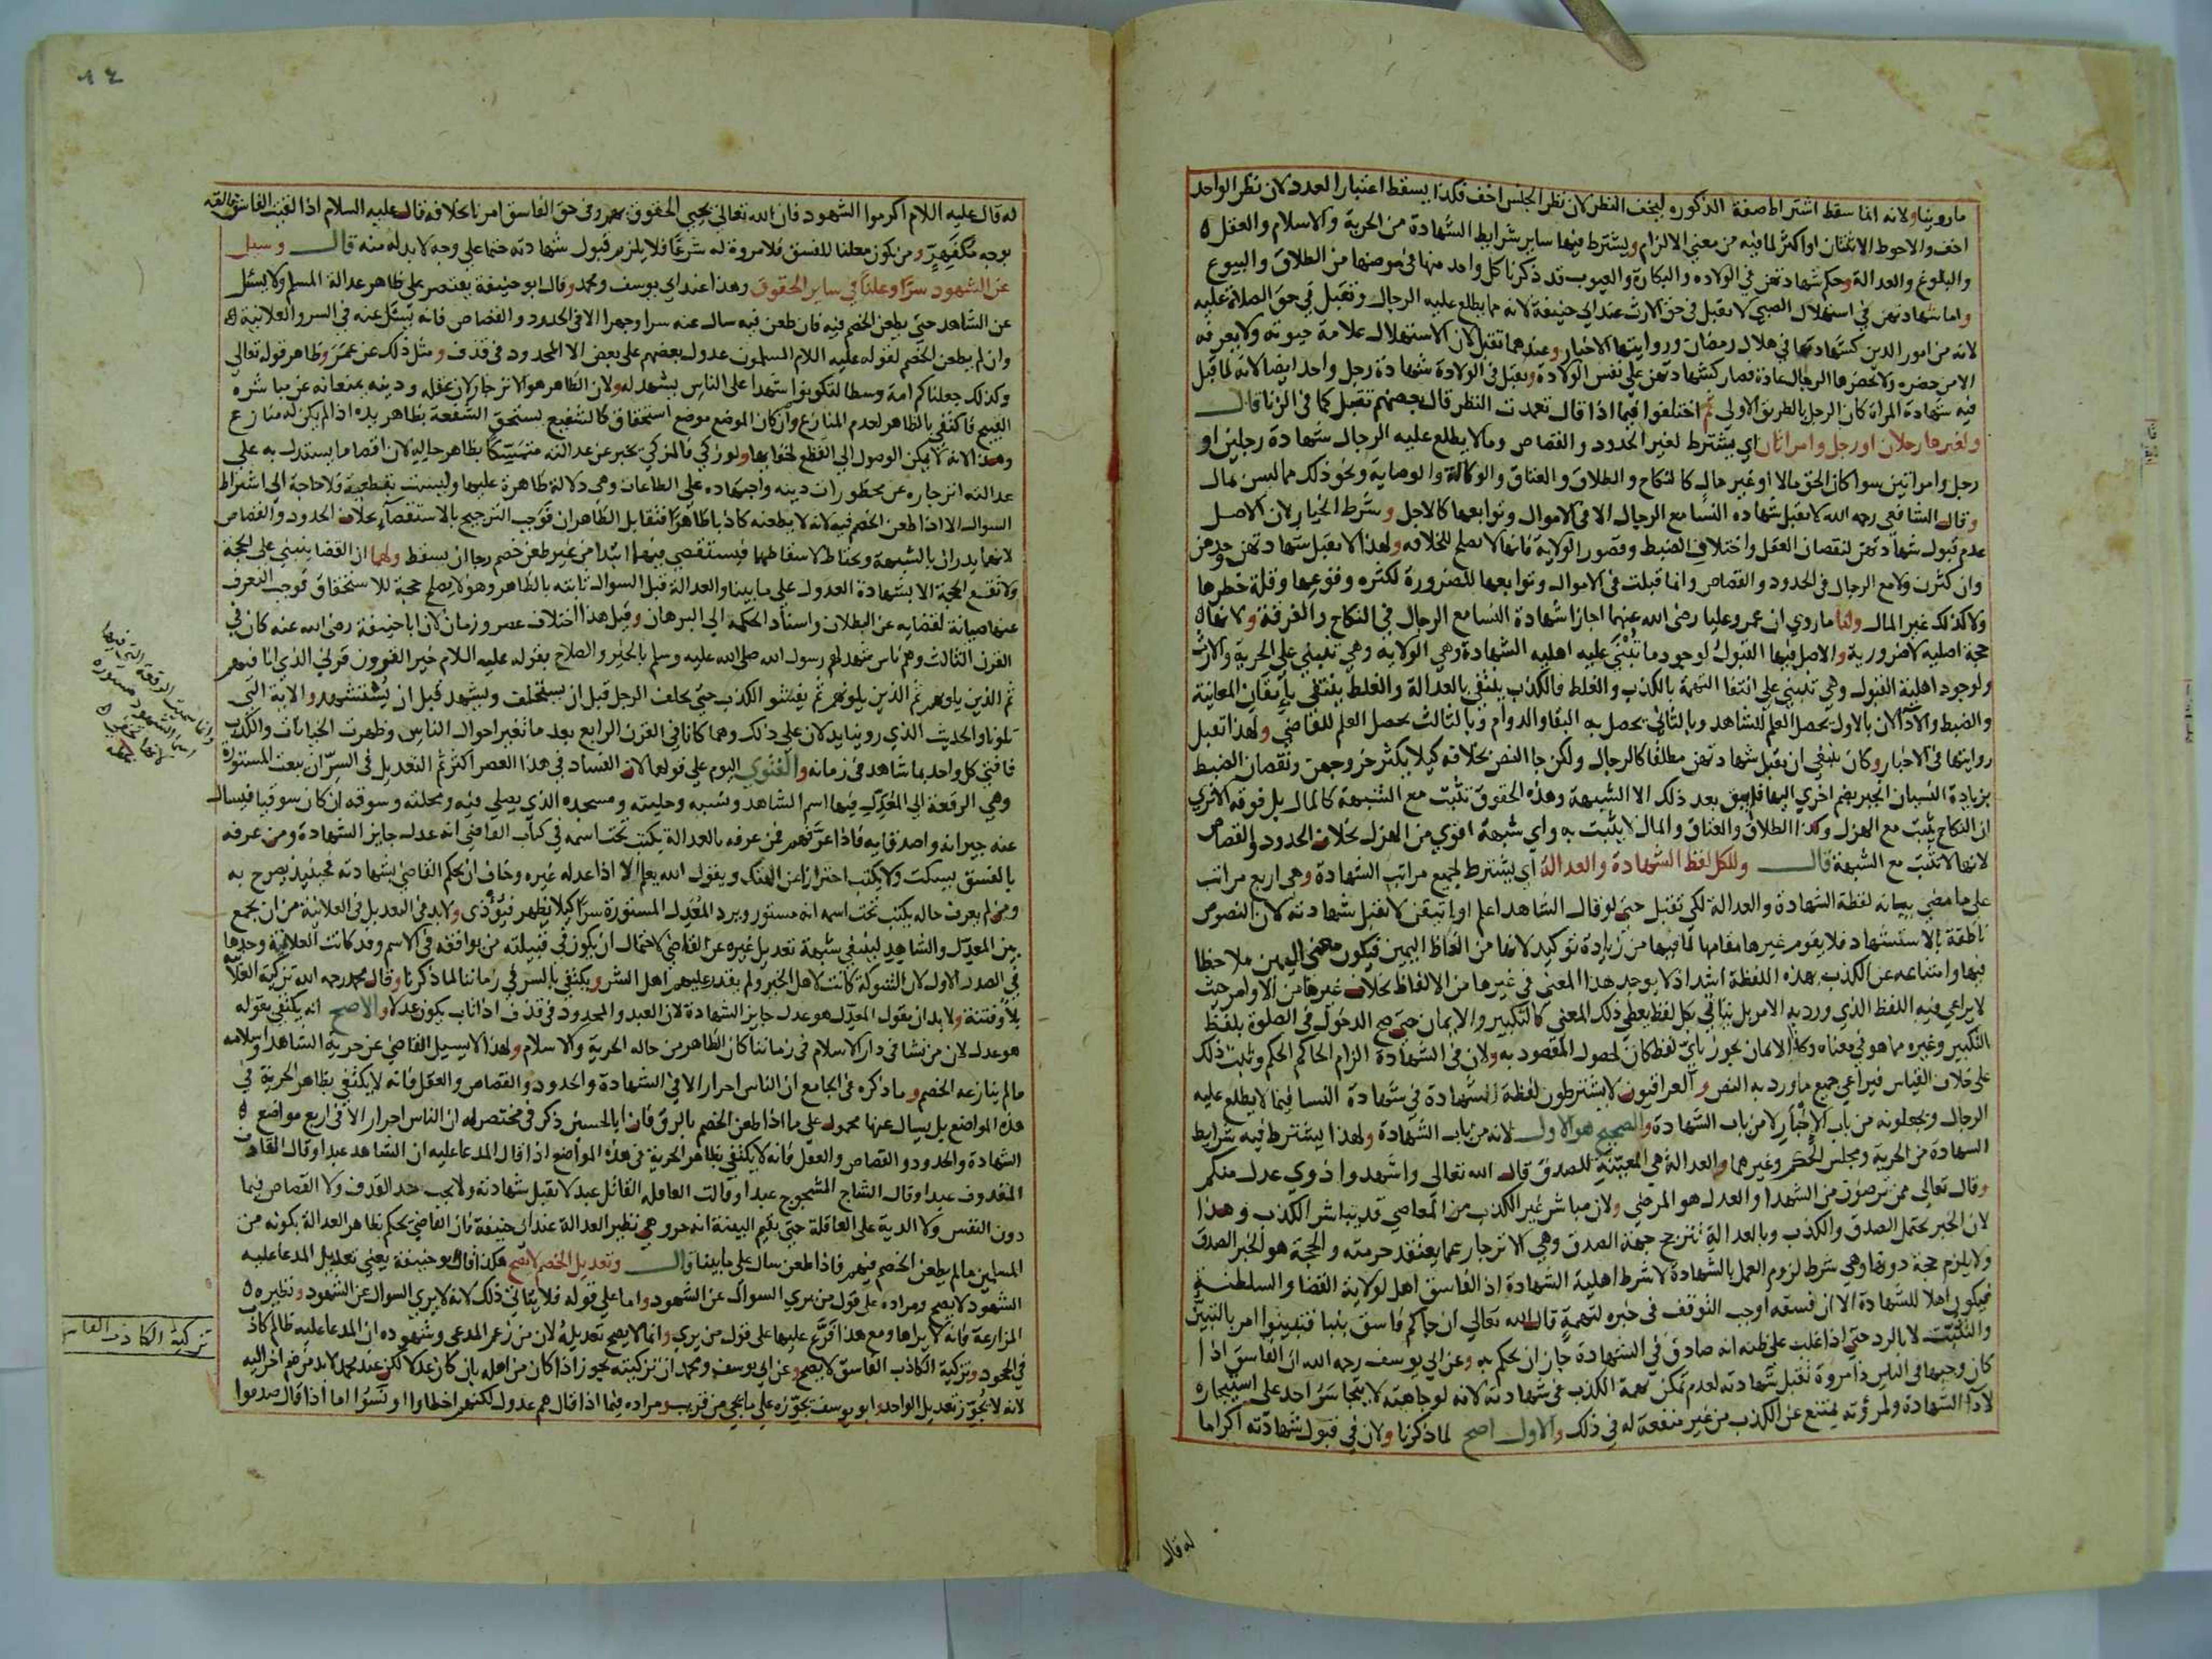 ماروينا ولانه انما سقط اشتراط صفة الذكوره ليخف النظر لان نظر الجنس اخف فكذا يسقط اعتبار العدد لان نظر الواحد
اخف والاحوط الاثنتان او اكثر لما فيه من معني الالزام ويشترط فيها ساير شرايط الشهادة من الحرية والاسلام والعقل
والبلوغ والعدالة وحكم شهادتهن في الولاده والبكارة والعيوب قد ذكرنا كل واحد منها في موضعها من الطلاق والبيوع
واما شهادتهن في استهلال الصبي لا تقبل في حق الارث عند ابي حنيفة لانه مما يطلع عليه الرجال وتقبل في حق الصلاة عليه
لانه من امور الدين كشهادتها في هلال رمضان وروايتها الاخبار وعندهما تقبل لان الاستهلال علامة حيوته ولا يعرفه
الا من حضره ولا يحضرها الرجال عادة فصار كشهادتهن علي نفس الولادة وتقبل في الولادة شهادة رجل واحد ايضا لانه لما قبل
فيه شهادة المراة كان الرجل بالطريق الاولي ثم اختلفوا فيما اذا قال تعمدت النظر قال بعضهم تقبل كما في الزنا قال
ولغيرها رجلان او رجل وامراتان اي يشترط لغير الحدود والقصاص وما لا يطلع عليه الرجال شهادة رجلين او
رجل وامراتين سوا كان الحق مالا او غير مال كالنكاح والطلاق والعتاق والوكالة والوصاية ونحو ذلك مما ليس بمال
وقال الشافعي رحمه الله لا تقبل شهاده النسا مع الرجال الا في الاموال وتوابعها كالاجل وشرط الخيار لان الاصل
عدم قبول شهادتهن لنقصان العقل واختلاف الضبط وقصور الولاية فانها لا تصلح للخلافه ولهذا لا تقبل شهادتهن وحدهن
وان كثرن ولا مع الرجال في الحدود والقصاص وانما قبلت في الاموال وتوابعها للضرورة لكثره وقوعها وقلة خطرها
ولا كذلك غير المال ولنا ما روي ان عمر وعليا رضي الله عنهما اجازا شهادة النسا مع الرجال في النكاح والفرقة ولانها
حجة اصلية لا ضرورية والاصل فيها القبول لوجود ما تبتني عليه اهليه الشهادة وهي الولايه وهي تنبني علي الحرية والارث
ولوجود اهلية القبول وهي تنبني علي انتفا التهمة بالكذب والغلط فالكذب ينتفي بالعدالة والغلط ينتفي باتقان المعاينة
والضبط والادا لان بالاول يحصل العلم للشاهد وبالثاني يحصل به البقا والدوام وبالثالث يحصل العلم للقاضي ولهذا تقبل
روايتها في الاخبار وكان ينبغي ان تقبل شهادتهن مطلقا كالرجال ولكن جا النص بخلافه كيلا يكثر خروجهن ونقصان الضبط
بزيادة النسيان انجبر بضم اخري اليها فلم يبق بعد ذلك الا الشبهة وهذه الحقوق تثبت مع الشبهة كالمال بل فوقه الا تري
ان النكاح يثبت مع الهزل وكذا الطلاق والعتاق والمال لا يثبت به واي شبهة اقوي من الهزل بخلاف الحدود والقصاص
لانها لا تثبت مع الشبهة قال وللكل لفظ الشهادة والعدالة اي يشترط لجميع مراتب الشهادة وهي اربع مراتب
علي ما مضي بيانه لفظة الشهادة والعدالة لكي تقبل حتي لو قال الشاهد اعلم او اتيقن لا تقبل شهادته لان النصوص
ناطقة بالاستشهاد فلا يقوم غيرها مقامها لما فيها من زيادة توكيد لانها من الفاظ اليمين فيكون معني اليمين ملاحظا
فيها وامتناعه عن الكذب بهذه اللفظة اشد اذ لا يوجد هذا المعني في غيرها من الالفاظ بخلاف غيرها من الاوامر حيث
لا يراعي فيه اللفظ الذي ورد به الامر بل يتاتي بكل لفظ يعطي ذلك المعني كالتكبير والايمان حتي صح الدخول في الصلوة بلفظ
التكبير وغيره مما هو في معناه وكذا الايمان يجوز باي لفظ كان لحصول المقصود به ولان في الشهادة الزام الحاكم الحكم وثبت ذلك
علي خلاف القياس فيراعي جميع ما ورد به النص والعراقيون لا يشترطون لفظة الشهادة في شهادة النسا فيما لا يطلع عليه
الرجال ويجعلونه من باب الاخبار لا من باب الشهادة والصحيح هو الاول لانه من باب الشهادة ولهذا يشترط فيه شرايط
الشهادة من الحرية ومجلس الحكم وغيرهما والعدالة هي المعينة للصدق قال الله تعالي واشهدوا ذوي عدل منكم
وقال تعالي ممن ترضون من الشهدا والعدل هو المرضي ولان مباشر غير الكذب من المعاصي قد يباشر الكذب وهذا
لان الخبر يحتمل الصدق والكذب وبالعدالة تترجح جهة الصدق وهي الانزجار عما يعتقد حرمته والحجة هو الخبر الصدق
ولا يلزم حجة دونها وهي شرط لزوم العمل بالشهادة لا شرط اهلية الشهادة اذ الفاسق اهل لولاية القضا والسلطنة
فيكون اهلا للشهادة الا ان فسقه اوجب التوقف في خبره لتهمة قال الله تعالي ان جاكم فاسق بنبا فتبينوا امر بالتبين
والتثبت لا بالرد حتي اذا غلب علي ظنه انه صادق في الشهادة جاز ان يحكم به وعن ابي يوسف رحمه الله ان الفاسق اذا
كان وجيها في الناس ذا مروة تقبل شهادته لعدم تمكن تهمة الكذب في شهادته لانه لوجاهته لا يتجاسر احد علي استيجاره
لادا الشهادة ولمرؤته يمتنع عن الكذب من غير منفعة له في ذلك والاول اصح لما ذكرنا ولان في قبول شهادته اكراما
له قال
١٤
له قال عليه اللام اكرموا الشهود فان الله تعالي يحيي الحقوق بهم وفي حق الفاسق امرنا بخلافه قال عليه السلام اذا لقيت الفاسق فالقه
بوجه مكفهر ومن يكون معلنا للفسق فلا مروة له شرعا فلا يلزم قبول شهادته حتما علي وجه لا بد له منه قال وسيل
عن الشهود سرا وعلنا في ساير الحقوق وهذا عند ابي يوسف ومحمد وقال ابو حنيفة يقتصر علي ظاهر عدالة المسلم ولا يسئل
عن الشاهد حتي يطعن الخصم فيه فان طعن فيه سال عنه سرا وجهرا الا في الحدود والقصاص فانه يسئل عنه في السر والعلانية
وان لم يطعن الخصم لقوله عليه اللام المسلمون عدول بعضهم علي بعض الا المحدود في قذف ومثل ذلك عن عمر وظاهر قوله تعالي
وكذلك جعلناكم امة وسطا لتكونوا شهدا علي الناس يشهد له ولان الظاهر هو الانزجار لان عقله ودينه يمنعانه عن مباشره
القبيح فاكتفي بالظاهر لعدم المنازع وان كان الموضع موضع استحقاق كالشفيع يستحق الشفعة بظاهر يده اذا لم يكن له منازع
وهذا لانه لا يمكن الوصول الي القطع لخفايها ولو زكي فالمزكي يخبر عن عدالته متمسكا بظاهر حاله لان اقصا ما يستدل به علي
عدالته انزجاره عن محظورات دينه واجتهاده علي الطاعات وهي دلالة ظاهرة عليها وليست بقطعية فلا حاجة الي اشتراط
السوال الا اذا طعن الخصم فيه لانه لا يطعنه كاذبا ظاهرا فتقابل الظاهران فوجب الترجيح بالاستقصا بخلاف الحدود والقصاص
لانهما يدران بالشبهة ويحتاط لاسقاطهما فيستقصي فيهما ابتدا من غير طعن خصم رجا ان يسقط ولهما ان القضا ينبني علي الحجة
ولا تقع الحجة الا بشهادة العدول علي ما بينا والعدالة قبل السوال ثابته بالظاهر وهو لا يصلح حجة للاستحقاق فوجب التعرف
عنها صيانة لقضايه عن البطلان واسناد الحكمه الي البرهان وقيل هذا اختلاف عصر وزمان لان ابا حنيفة رضي الله عنه كان في
القرن الثالث وهم ناس شهد لهم رسول الله صلي الله عليه وسلم بالخير والصلاح بقوله عليه اللام خير القرون قرني الذي انا فيهم
ثم الذين يلونهم ثم الذين يلونهم ثم يفشو الكذب حتي يحلف الرجل قبل ان يستحلف ويشهد قبل ان يستشهد والاية التي
تلونا والحديث الذي روينا يدلان علي ذلك وهما كانا في القرن الرابع بعد ما تغير احوال الناس وظهرت الخيانات والكذب
فافتي كل واحد بما شاهد في زمانه والفتوي اليوم علي قولهما لان الفساد في هذا العصر اكثر ثم التعديل في السر ان يبعث المستورة
وهي الرقعة الي المعدل فيها اسم الشاهد ونسبه وحليته ومسجده الذي يصلي فيه ومحلته وسوقه ان كان سوقيا فيسال
عنه جيرانه واصدقايه فاذا عرفهم فمن عرفه بالعدالة يكتب تحت اسمه في كتاب القاضي انه عدل جايز الشهادة ومن عرفه
بالفسق يسكت ولا يكتب احترازا عن الهتك ويقول الله يعلم الا اذا عدله غيره وخاف ان يحكم القاضي بشهادته فحينيذ يصرح به
ومن لم يعرف حاله يكتب تحت اسمه انه مستور ويرد المعدل المستورة سرا كيلا يظهر فيؤذي ولا بد في التعديل في العلانية من ان يجمع
بين المعدل والشاهد لينتفي شبهة تعديل غيره عن القاضي لاحتمال ان يكون في قبيلته من يوافقه في الاسم وقد كانت العلانية وحدها
في الصدر الاول لان الشوكة كانت لاهل الخير ولم يقدر عليهم اهل الشر ويكتفي بالسر في زماننا لما ذكرنا وقال محمد رحمه الله تزكية العلا
بلا وفتنة ولا بد ان يقول المعدل هو عدل جايز الشهادة لان العبد والمحدود في قذف اذا تاب يكون عدلا والاصح انه يكتفي بقوله
هو عدل لان من نشا في دار الاسلام في زماننا كان الظاهر من حاله الحرية والاسلام ولهذا لا يسيل القاضي عن حرية الشاهد واسلامه
ما لم ينازعه الخصم وما ذكره في الجامع ان الناس احرار الا في الشهادة والحدود والقصاص والعقل فانه لا يكتفي بظاهر الحرية في
هذه المواضع بل يسال عنها محمول علي ما اذا طعن الخصم بالرق فان ابا الحسين ذكر في مختصره ان الناس احرار الا في اربع مواضع
الشهادة والحدود والقصاص والعقل فانه لا يكتفي بظاهر الحرية في هذه المواضع اذا قال المدعا عليه ان الشاهد عبد او قال القاذف
المقذوف عبد او قال الشاج المشجوج عبد او قالت العاقله القاتل عبد لا تقبل شهادته ولا يجب حد القذف ولا القصاص فيما
دون النفس ولا الدية علي العاقلة حتي يقيم البينة انه حر وهي نظير العدالة عند ابي حنيفة فان القاضي يحكم بظاهر العدالة بكونه من
المسلمين ما لم يطعن الخصم فيهم فاذا طعن سال علي ما بينا قال وتعديل الخصم لا يصح هكذا قال ابو حنيفة يعني تعديل المدعا عليه
الشهود لا يصح ومراده علي قول من يري السوال عن الشهود واما علي قوله فلا يتاتي ذلك لانه لا يري السوال عن الشهود ونظيره
المزارعة فانه لا يراها ومع هذا فرع عليها علي قول من يري وانما لا يصح تعديله لان من زعم المدعي وشهوده ان المدعا عليه ظالم كاذب
في الجحود وتزكية الكاذب الفاسق لا يصح وعن ابي يوسف ومحمد ان تزكيته تجوز اذا كان من اهله بان كان عدلا لكن عند محمد لا بد من ضم اخر اليه
لانه لا يجوز تعديل الواحد وابو يوسف يجوزه علي ما يجي من قريب ومراده فيما اذا قال هم عدول لكنهم اخطاوا او نسوا اما اذا قال صدقوا
وانما سميت الرقعة التي فيها
اسما الشهود مستورة
لانها تخفي
تزكية الكاذب الفاس